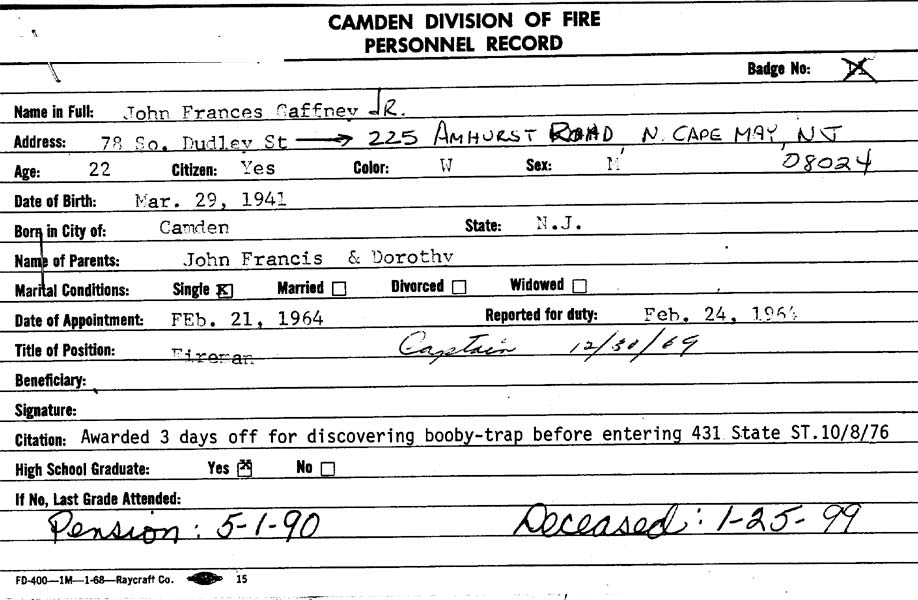 CAMDEN DIVISION OF FIRE
PERSONNEL RECORD
Badge No:
Name in Full: John Frances Gaffney JR.
Address: 78 So. Dudley St → 225 AMHURST ROAD N. CAPE MAY, NJ
08024
Age: 22 Citizen: Yes Color: W Sex: M
Date of Birth: Mar. 29, 1941
Born in City of: Camden State: N.J.
Name of Parents: John Francis & Dorothy
Marital Conditions: Single ☒ Married ☐ Divorced ☐ Widowed ☐
Date of Appointment: FEb. 21, 1964 Reported for duty: Feb. 24, 1964
Title of Position: Fireman Captain 12/30/69
Beneficiary:
Signature:
Citation: Awarded 3 days off for discovering booby-trap before entering 431 State ST.10/8/76
High School Graduate: Yes ☒ No ☐
If No, Last Grade Attended:
Pension: 5-1-90 Deceased: 1-25-99
FD-400—1M—1-68—Raycraft Co. 15